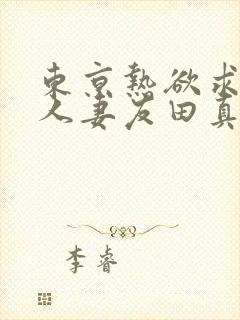 東京熱欲求
人妻友田真
李睿